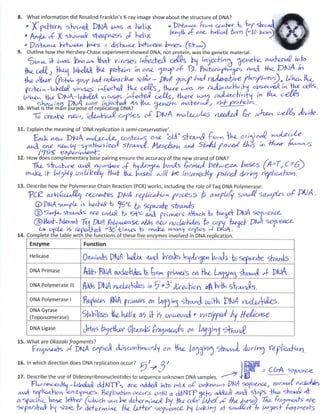 8. What information did Rosalind Franklin's X-ray image show about the structure of DNA?
• 'X' pattern showed DNA was a helix
• Distance from center to top showed
• Angle of X showed steepness of helix
length of one helical turn (~10 bases)
• Distance between bars = distance between bases
9. Outline how the Hershey-Chase experiment showed DNA, not protein, was the genetic material.
Since it was known that viruses infected cells by injecting genetic material into
the cell, they labeled the protein in one group of T2 bacteriophages and the DNA in
the other (Protein group had radioactive sulfur - DNA group had radioactive phosphorus). When the
protein-labeled viruses infected the cells, there was no radioactivity observed in the cells.
When the DNA-labeled viruses infected cells, there was radioactivity in the cells
showing DNA was injected as the genetic material, not protein.
10. What is the main purpose of replicating DNA?
To create new, identical copies of DNA molecules needed for when cells divide.
11. Explain the meaning of 'DNA replication is semi-conservative'.
Each new DNA molecule contains one "old" strand from the original molecule
and one newly-synthesised strand. Meselson and Stahl proved this in their famous
1958 experiment
12. How does complementary base pairing ensure the accuracy of the new strand of DNA?
The structure and number of hydrogen bonds formed between bases (A=T, C≡G)
make it highly unlikely that the bases will be incorrectly paired during replication.
13. Explain how the Polymerase Chain Reaction (PCR) works, including the role of Taq DNA Polymerase:
PCR artificially recreates DNA replication process to amplify small samples of DNA.
① DNA sample is heated to 95°C to separate strands
② Sample strands are cooled to 54°C and primers attach to target DNA sequence.
③ Heat-tolerant Taq DNA Polymerase adds new nucleotides to copy target DNA sequence
Cycle is repeated ~30 times to make many copies of DNA.
14. Complete the table with the functions of these five enzymes involved in DNA replication.
Enzyme Function
Helicase Unwinds DNA helix and breaks hydrogen bonds to separate strands
DNA Primase Adds RNA nucleotides to form primers on the lagging strand of DNA.
DNA Polymerase III Adds DNA nucleotides in 5'→3' direction on both strands.
DNA Polymerase I Replaces RNA primers on lagging strand with DNA nucleotides.
DNA Gyrase (Topoisomerase) Stabilises the helix as it is unwound + unzipped by Helicase.
DNA Ligase Joins together Okazaki fragments on lagging strand.
15. What are Okazaki fragments?
Fragments of DNA copied discontinuously on the lagging strand during replication
16. In which direction does DNA replication occur?
5' → 3'
17. Describe the use of Dideoxyribonucleotides to sequence unknown DNA samples.
CCGA sequence
Fluorescently-labeled ddNTPs are added into mix of unknown DNA sequence, normal nucleotides
and replication enzymes. Replication occurs until a ddNTP gets added and stops the strand at
a specific base letter (which can be determined by the color label of the dye). The fragments are
separated by size to determine the letter sequence by looking at smallest to largest fragments.